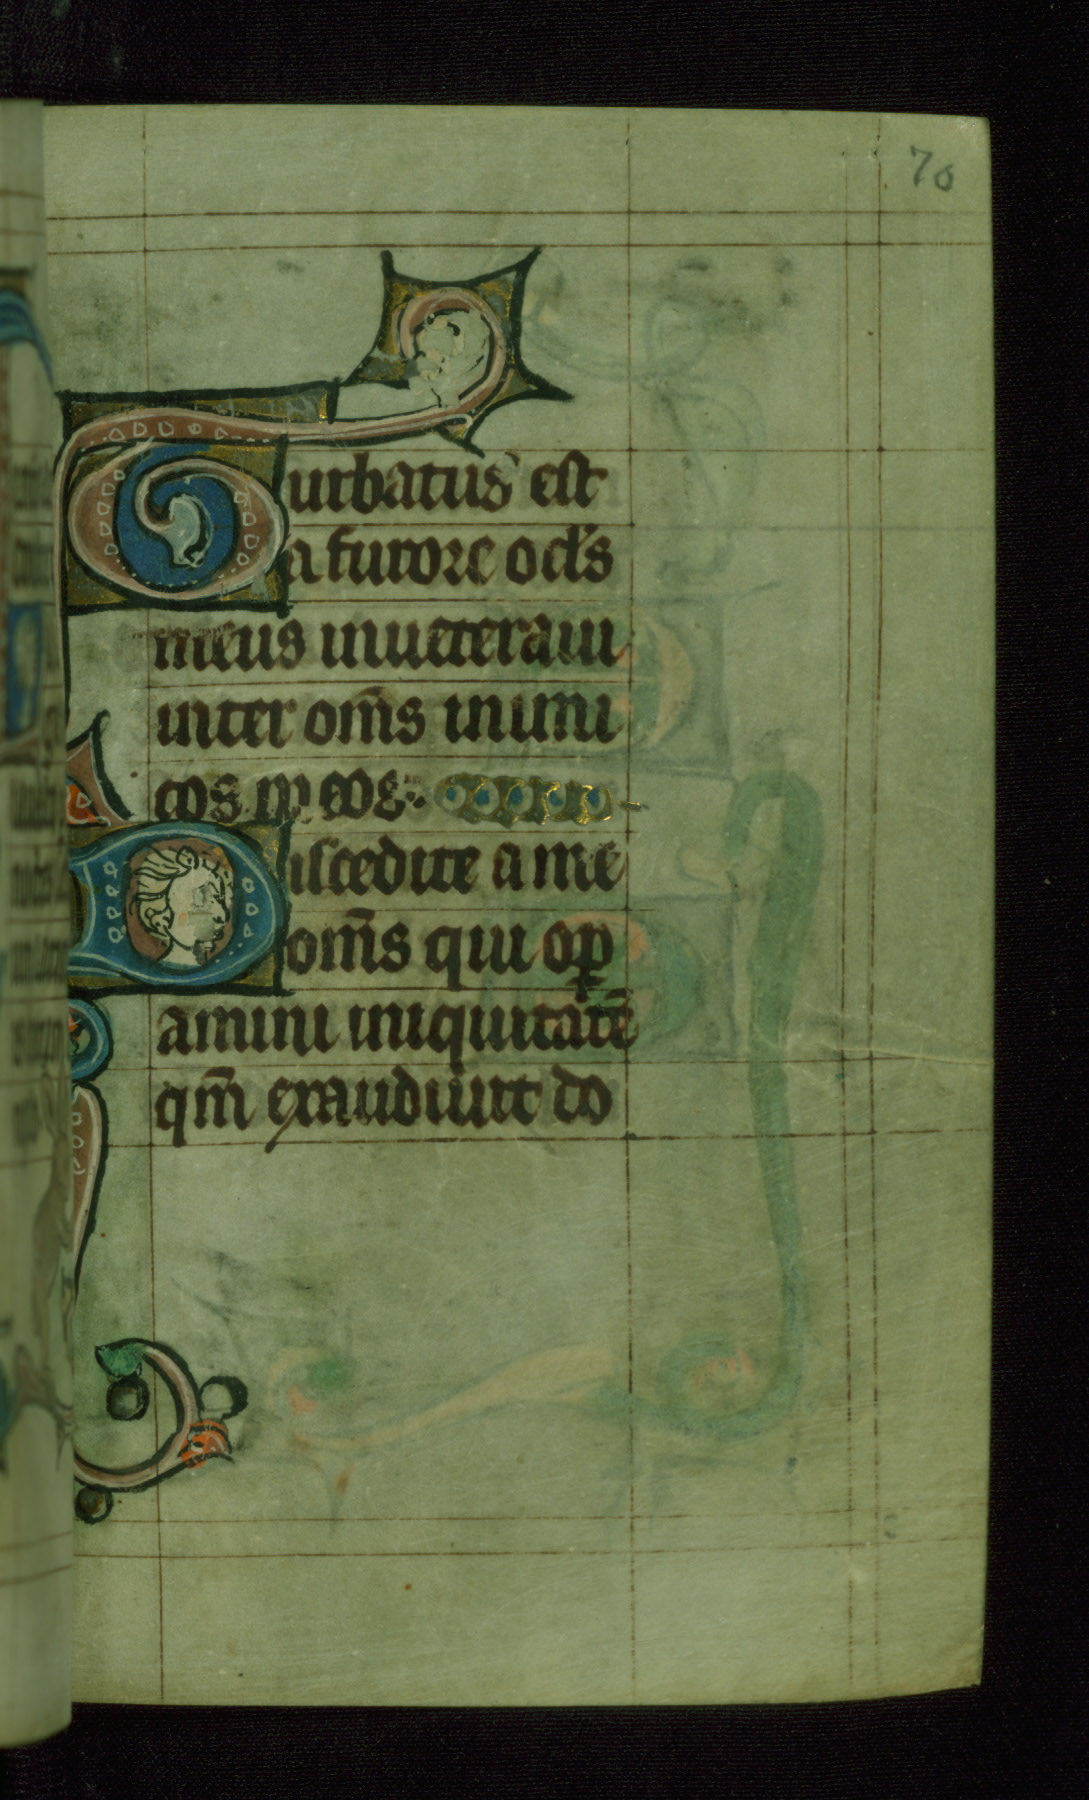 70
Turbatus est
a furore ocl's
meus inueteraui
inter om̄s inimi
cos meos
Discedite a me
om̄s qui oꝑ
amini iniquitatē
qm̄ exaudiuit do